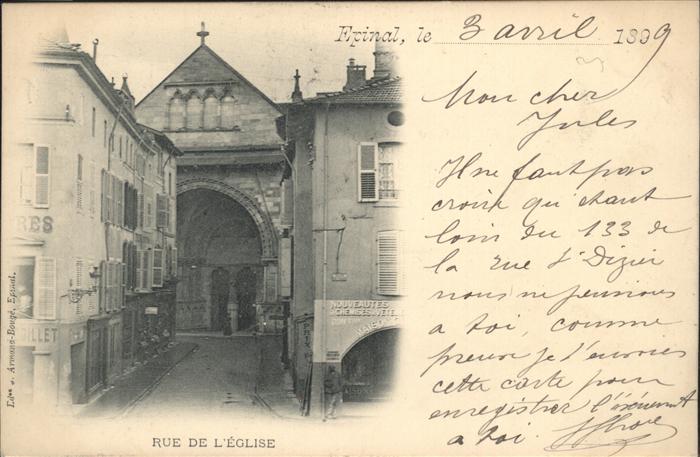 Epinal, le 3 avril 1899
Mon cher
Jules
Il ne faut pas
croire qu'étant
loin du 133 de
la rue St Dizier
nous ne pensions
a toi, comme
preuve je t'envoies
cette carte pour
enregistrer l'événement
a toi.
RES
LLET
NOUVEAUTÉS
CHEMISES
MAISON
PRIX
Edit. J. Armand-Bougé, Epinal.
RUE DE L'ÉGLISE